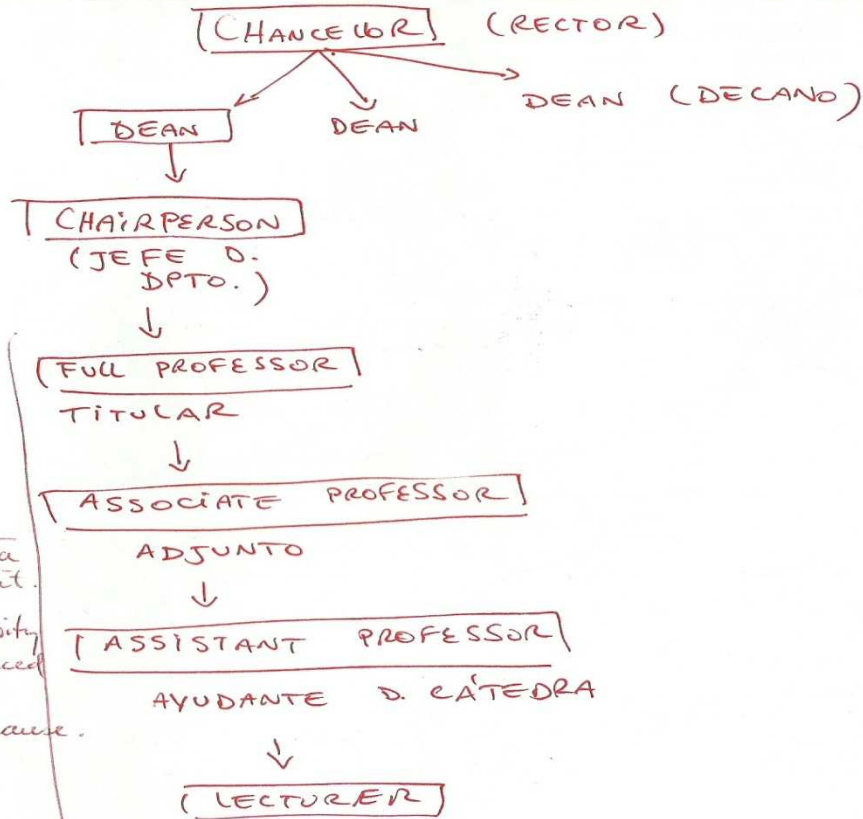 CHANCELLOR (RECTOR)
DEAN DEAN DEAN (DECANO)
CHAIRPERSON
(JEFE D.
DPTO.)
FULL PROFESSOR
TITULAR
ASSOCIATE PROFESSOR
ADJUNTO
ASSISTANT PROFESSOR
AYUDANTE D. CÁTEDRA
LECTURER